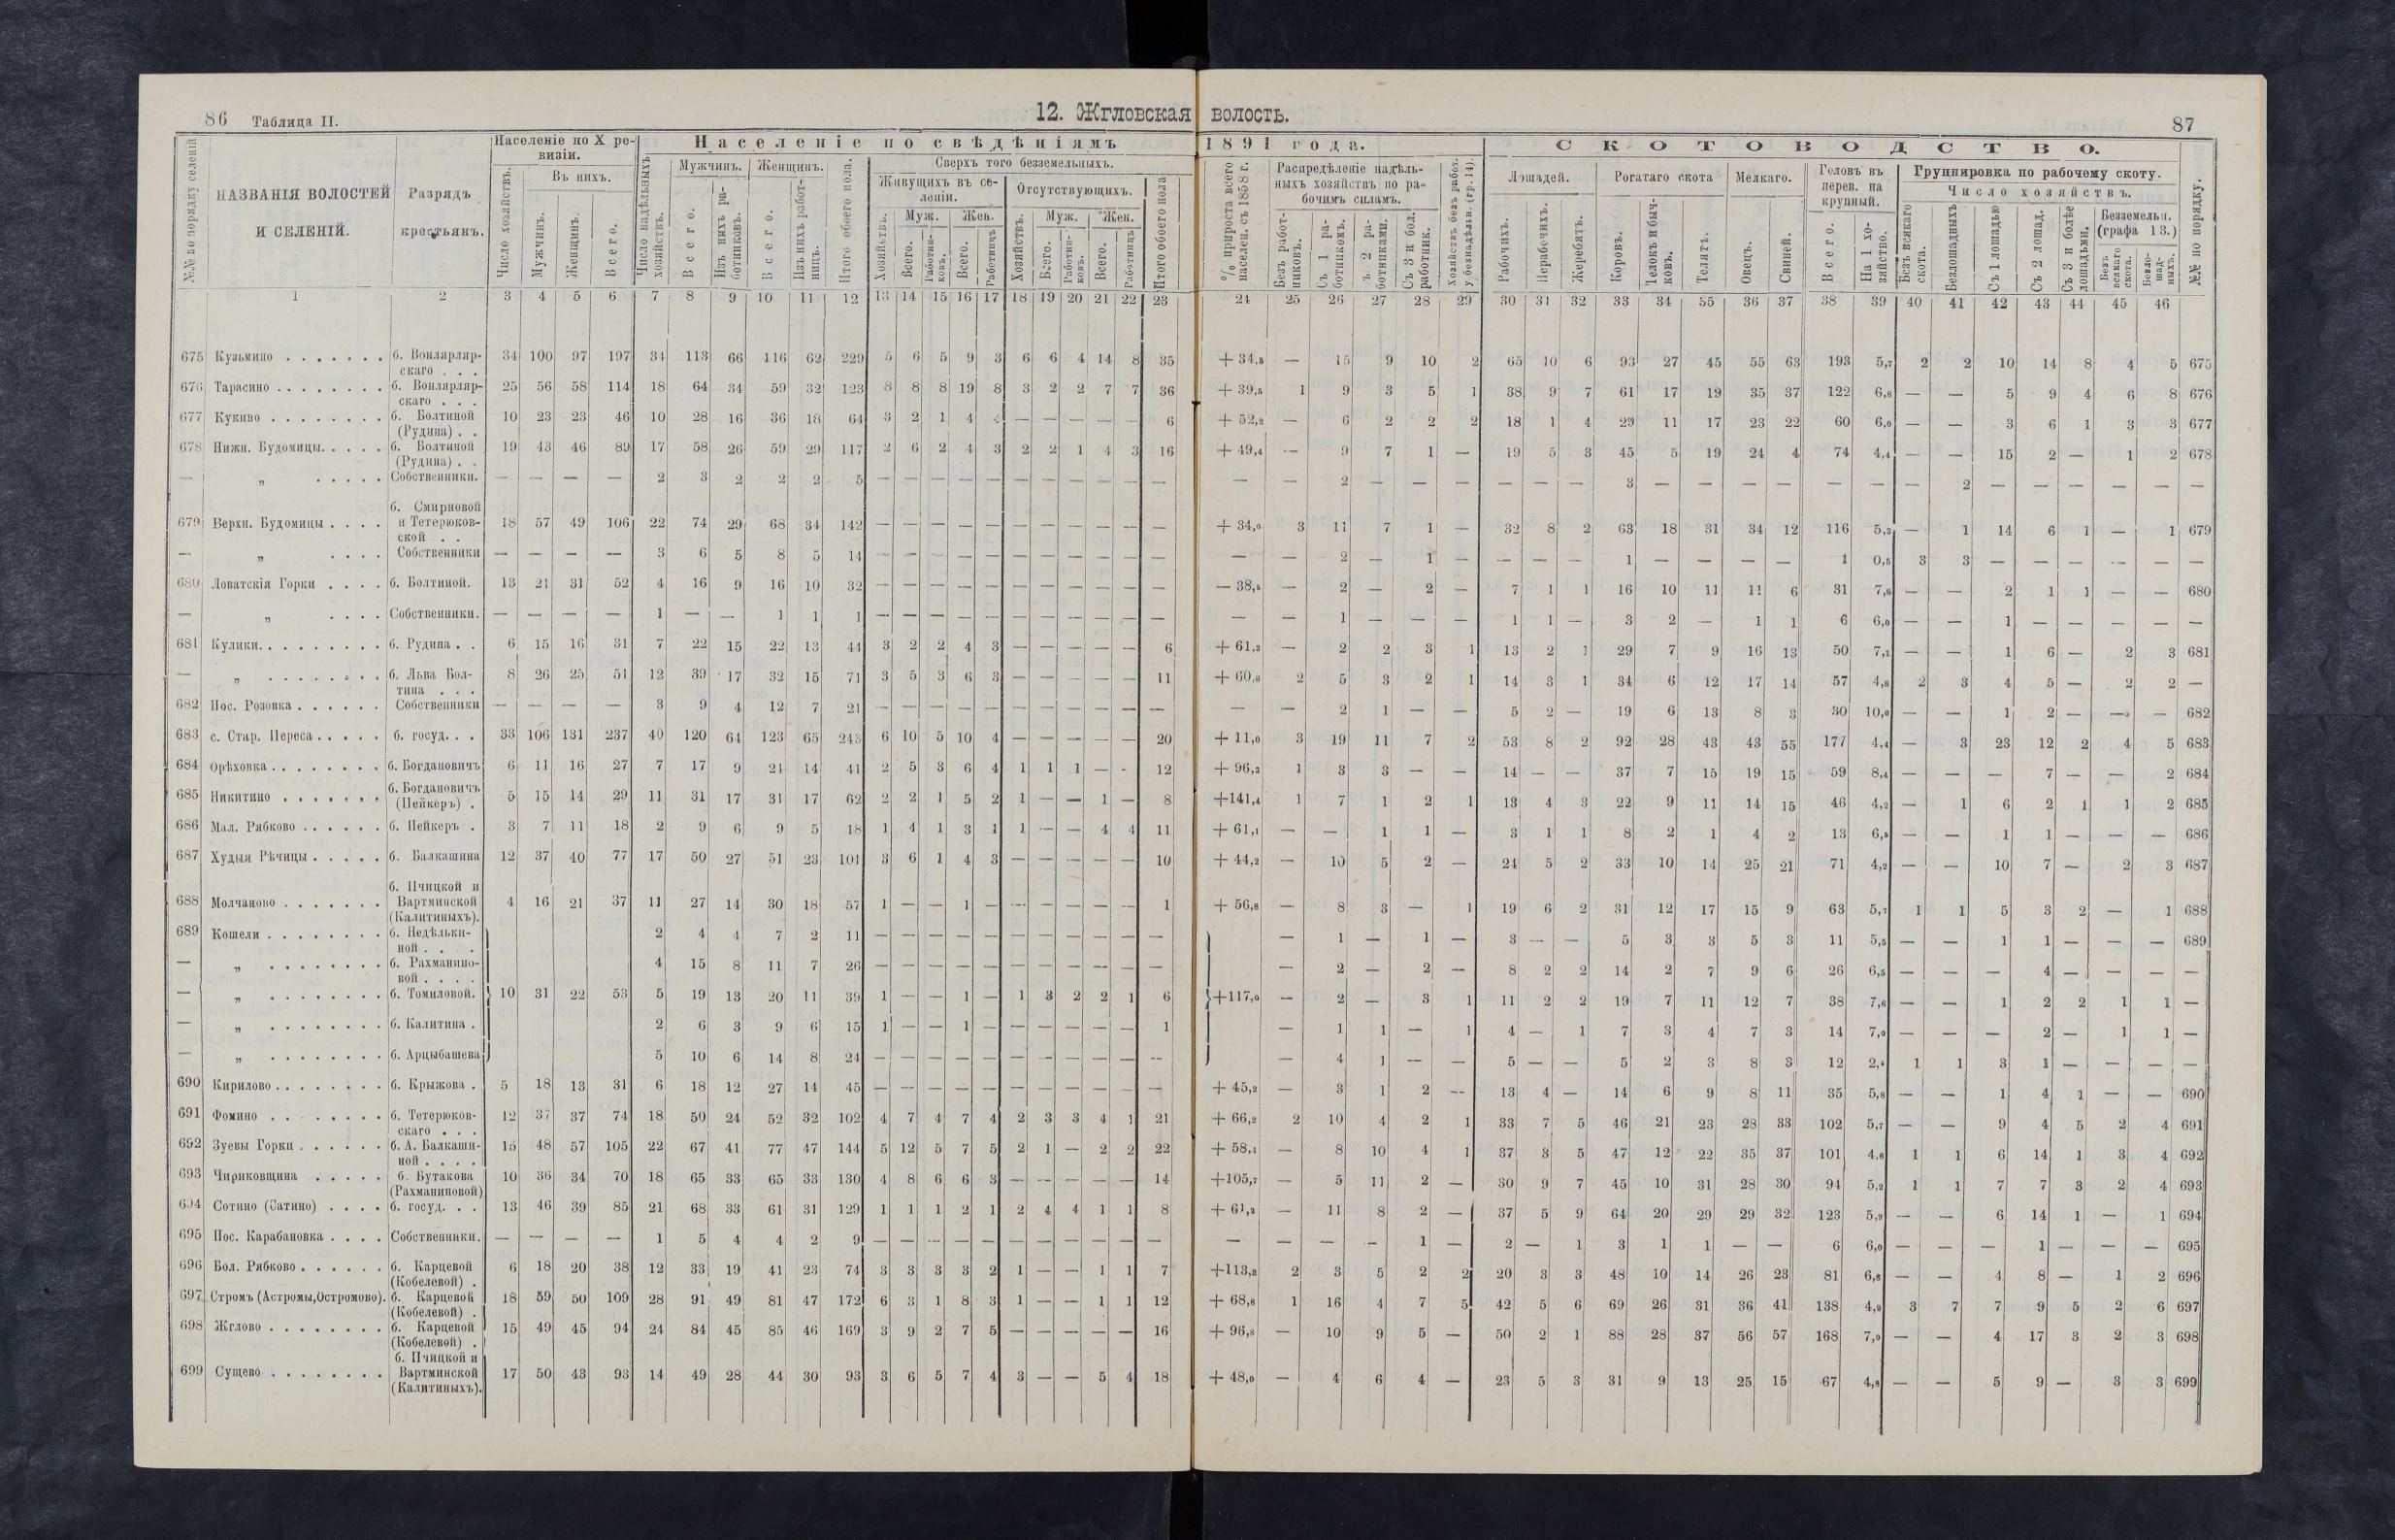 86 Таблица II.
12. Жгловская волость.
87
№№ по порядку селеній
НАЗВАНІЯ ВОЛОСТЕЙ
И СЕЛЕНІЙ.
Разрядъ
крестьянъ.
Населеніе по X ре-
визіи.
Число хозяйствъ.
Въ нихъ.
Мужчинъ.
Женщинъ.
Всего.
Населеніе по свѣдѣніямъ 1891 года.
Число надѣльныхъ
хозяйствъ.
Мужчинъ.
Всего.
Изъ нихъ ра-
ботниковъ.
Женщинъ.
Всего.
Изъ нихъ работ-
ницъ.
Итого обоего пола.
Сверхъ того безземельныхъ.
Живущихъ въ се-
леніи.
Хозяйствъ.
Муж.
Всего.
Работни-
ковъ.
Жен.
Всего.
Работницъ
Отсутствующихъ.
Хозяйствъ.
Муж.
Всего.
Работни-
ковъ.
Жен.
Всего.
Работницъ
Итого обоего пола
% прироста всего
населен. съ 1858 г.
Распредѣленіе надѣль-
ныхъ хозяйствъ по ра-
бочимъ силамъ.
Безъ работ-
никовъ.
Съ 1 ра-
ботникомъ.
ъ 2 ра-
ботниками.
Съ 3 и бол.
работник.
Хозяйствъ безъ работ.
у безнадѣльн. (гр. 14).
СКОТОВОДСТВО.
Лошадей.
Рабочихъ.
Нерабочихъ.
Жеребятъ.
Рогатаго скота
Коровъ.
Телокъ и быч-
ковъ.
Телятъ.
Мелкаго.
Овецъ.
Свиней.
Головъ въ
перев. на
крупный.
Всего.
На 1 хо-
зяйство.
Группировка по рабочему скоту.
Число хозяйствъ.
Безъ всякаго
скота.
Безлошадныхъ
Съ 1 лошадью
Съ 2 лошад.
Съ 3 и болѣе
лошадьми.
Безземельн.
(графа 13.)
Безъ
всякаго
скота.
Безло-
шад-
ныхъ.
№№ по порядку.
1 2 3 4 5 6 7 8 9 10 11 12 13 14 15 16 17 18 19 20 21 22 23 24 25 26 27 28 29 30 31 32 33 34 55 36 37 38 39 40 41 42 43 44 45 46
675 Кузьмино . . . . . . . б. Вонлярляр-
скаго . . . 34 100 97 197 34 113 66 116 62 229 5 6 5 9 3 6 6 4 14 8 35 + 34,5 — 15 9 10 2 65 10 6 93 27 45 55 63 193 5,7 2 2 10 14 8 4 5 675
676 Тарасино . . . . . . . . б. Вонлярляр-
скаго . . . 25 56 58 114 18 64 34 59 32 123 8 8 8 19 8 3 2 2 7 7 36 + 39,5 1 9 3 5 1 38 9 7 61 17 19 35 37 122 6,8 — — 5 9 4 6 8 676
677 Кукиво . . . . . . . . б. Болтиной
(Рудина) . . 10 23 23 46 10 28 16 36 18 64 3 2 1 4 — — — — — 6 + 52,2 — 6 2 2 2 18 1 4 29 11 17 23 22 60 6,0 — — 3 6 1 3 3 677
678 Нижн. Будомицы. . . . . б. Болтиной
(Рудина) . . 19 43 46 89 17 58 26 59 29 117 2 6 2 4 3 2 2 1 4 3 16 + 49,4 — 9 7 1 — 19 5 3 45 5 19 24 4 74 4,4 — — 15 2 — 1 2 678
— „ . . . . . Собственники. — — — — 2 3 2 2 2 5 — — — — — — — — — — — — — 2 — — — — — — 3 — — — — — — — 2 — — — — — —
679 Верхн. Будомицы . . . . б. Смирновой
и Тетерюков-
ской . . 18 57 49 106 22 74 29 68 34 142 — — — — — — — — — — — + 34,0 3 11 7 1 — 32 8 2 63 18 31 34 12 116 5,3 — 1 14 6 1 — 1 679
— „ . . . . Собственники — — — — 3 6 5 8 5 14 — — — — — — — — — — — — — 2 — 1 — — — — 1 — — — — 1 0,5 3 3 — — — — — —
680 Ловатскія Горки . . . . б. Болтиной. 13 21 31 52 4 16 9 16 10 32 — — — — — — — — — — — — 38,5 — 2 — 2 — 7 1 1 16 10 11 11 6 31 7,8 — — 2 1 1 — — 680
— „ . . . . Собственники. — — — — 1 — — 1 1 1 — — — — — — — — — — — — — 1 — — — 1 1 — 3 2 — 1 1 6 6,0 — — 1 — — — — —
681 Кулики. . . . . . . . . б. Рудина . . 6 15 16 31 7 22 15 22 13 44 3 2 2 4 3 — — — — — 6 + 61,3 — 2 2 3 1 13 2 1 29 7 9 16 13 50 7,1 — — 1 6 — 2 3 681
— „ . . . . . . . . б. Льва Бол-
тина . . . 8 26 25 51 12 39 17 32 15 71 3 5 3 6 3 — — — — — 11 + 60,8 2 5 3 2 1 14 3 1 34 6 12 17 14 57 4,8 2 3 4 5 — 2 2 —
682 Пос. Розовка . . . . . . Собственники — — — — 3 9 4 12 7 21 — — — — — — — — — — — — — 2 1 — — 5 2 — 19 6 13 8 3 30 10,0 — — 1 2 — — — 682
683 с. Стар. Переса . . . . . б. госуд. . . 33 106 131 237 40 120 64 123 65 243 6 10 5 10 4 — — — — — 20 + 11,0 3 19 11 7 2 53 8 2 92 28 43 43 55 177 4,4 — 3 23 12 2 4 5 683
684 Орѣховка . . . . . . . . б. Богдановичъ 6 11 16 27 7 17 9 24 14 41 2 5 3 6 4 1 1 1 — - 12 + 96,3 1 3 3 — — 14 — — 37 7 15 19 15 59 8,4 — — — 7 — — 2 684
685 Никитино . . . . . . . б. Богдановичъ
(Пейкеръ) . 5 15 14 29 11 31 17 31 17 62 2 2 1 5 2 1 — — 1 — 8 +141,4 1 7 1 2 1 13 4 3 22 9 11 14 15 46 4,2 — 1 6 2 1 1 2 685
686 Мал. Рябково . . . . . . б. Пейкеръ . 3 7 11 18 2 9 6 9 5 18 1 4 1 3 1 1 — — 4 4 11 + 61,1 — — 1 1 — 3 1 1 8 2 1 4 2 13 6,5 — — 1 1 — — — 686
687 Худыя Рѣчицы . . . . . б. Балкашина 12 37 40 77 17 50 27 51 23 101 3 6 1 4 3 — — — — — 10 + 44,2 — 10 5 2 — 24 5 2 33 10 14 25 21 71 4,2 — — 10 7 — 2 3 687
688 Молчаново . . . . . . . б. Пчицкой и
Вартминской
(Калитиныхъ). 4 16 21 37 11 27 14 30 18 57 1 — — 1 — — — — — — 1 + 56,8 — 8 3 — 1 19 6 2 31 12 17 15 9 63 5,7 1 1 5 3 2 — 1 688
689 Кошели . . . . . . . . б. Недѣльки-
ной . . . 2 4 4 7 2 11 — — — — — — — — — — — — 1 — 1 — 3 — — 5 3 3 5 3 11 5,5 — — 1 1 — — — 689
— „ . . . . . . . . б. Рахманино-
вой . . . . 4 15 8 11 7 26 — — — — — — — — — — — — 2 — 2 — 8 2 2 14 2 7 9 6 26 6,5 — — — 4 — — — —
— „ . . . . . . . . б. Томиловой. 10 31 22 53 5 19 13 20 11 39 1 — — 1 — 1 3 2 2 1 6 +117,0 — 2 — 3 1 11 2 2 19 7 11 12 7 38 7,6 — — 1 2 2 1 1 —
— „ . . . . . . . . б. Калитина . 2 6 3 9 6 15 1 — — 1 — — — — — — 1 — 1 1 — 1 4 — 1 7 3 4 7 3 14 7,0 — — — 2 — 1 1 —
— „ . . . . . . . . б. Арцыбашева 5 10 6 14 8 24 — — — — — — — — — — — — 4 1 — — 5 — — 5 2 3 8 3 12 2,4 1 1 3 1 — — — —
690 Кирилово . . . . . . . . б. Крыжова . 5 18 13 31 6 18 12 27 14 45 — — — — — — — — — — — + 45,2 — 3 1 2 — 13 4 — 14 6 9 8 11 35 5,8 — — 1 4 1 — — 690
691 Фомино . . . . . . . б. Тетерюков-
скаго . . . 12 37 37 74 18 50 24 52 32 102 4 7 4 7 4 2 3 3 4 1 21 + 66,2 2 10 4 2 1 33 7 5 46 21 23 28 33 102 5,7 — — 9 4 5 2 4 691
692 Зуевы Горки . . . . . . б. А. Балкаши-
ной . . . . 15 48 57 105 22 67 41 77 47 144 5 12 5 7 5 2 1 — 2 2 22 + 58,1 — 8 10 4 1 37 3 5 47 12 22 35 37 101 4,6 1 1 6 14 1 3 4 692
693 Чириковщина . . . . . б. Бутакова
(Рахманиновой) 10 36 34 70 18 65 33 65 33 130 4 8 6 6 3 — — — — — 14 +105,7 — 5 11 2 — 30 9 7 45 10 31 28 30 94 5,2 1 1 7 7 3 2 4 693
694 Сотино (Сатино) . . . . б. госуд. . . 13 46 39 85 21 68 33 61 31 129 1 1 1 2 1 2 4 4 1 1 8 + 61,2 — 11 8 2 — 37 5 9 64 20 29 29 32 123 5,9 — — 6 14 1 — 1 694
695 Пос. Карабановка . . . . Собственники. — — — — 1 5 4 4 2 9 — — — — — — — — — — — — — — - 1 — 2 — 1 3 1 1 — — 6 6,0 — — — 1 — — — 695
696 Бол. Рябково . . . . . . б. Карцевой
(Кобелевой) . 6 18 20 38 12 33 19 41 23 74 3 3 3 3 2 1 — — 1 1 7 +113,2 2 3 5 2 2 20 3 3 48 10 14 26 23 81 6,8 — — 4 8 — 1 2 696
697 Стромъ (Астромы, Остромово). б. Карцевой
(Кобелевой) . 18 59 50 109 28 91 49 81 47 172 6 3 1 8 3 1 — — 1 1 12 + 68,8 1 16 4 7 5 42 5 6 69 26 31 36 41 138 4,9 3 7 7 9 5 2 6 697
698 Жглово . . . . . . . . б. Карцевой
(Кобелевой) . 15 49 45 94 24 84 45 85 46 169 3 9 2 7 5 — — — — — 16 + 96,8 — 10 9 5 — 50 2 1 88 28 37 56 57 168 7,0 — — 4 17 3 2 3 698
699 Сущево . . . . . . . . б. Пчицкой и
Вартминской
(Калитиныхъ). 17 50 43 93 14 49 28 44 30 93 3 6 5 7 4 3 — — 5 4 18 + 48,0 — 4 6 4 — 23 5 3 31 9 13 25 15 67 4,8 — — 5 9 — 3 3 699